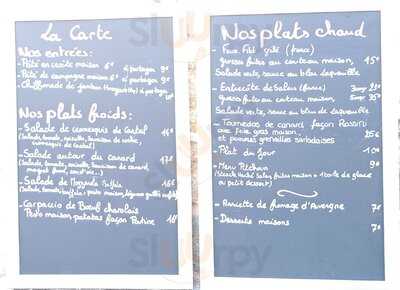 La Carte
Nos entrées:
- Pâté en croûte maison 6€ à partager 9€
- Pâté de campagne maison 6€ à partager 9€
- Chiffonnade de jambon à partager
Nos plats froids:
- Salade de cornequis de Cantal 16€
(Salade, tomate,
- Salade autour du canard 17€
(Salade, tomate,
- Salade de 16€
- Carpaccio de Bœuf charolais 18€
Pesto maison patatas façon Partine
Nos plats chaud
- Faux Filet grillé (France)
grosses frites au couteau maison, 15€
Salade verte, sauce au bleu disponible
- Entrecôte de Salers (France)
grosses frites au couteau, maison
Salade verte, sauce au bleu disponible
- Tournedos de canard façon Rossini
avec foie gras maison, 25€
et pommes grenailles sarladaises
- Plat du jour 10€
- Menu P'tichou 9€
(Steack haché Salers, frites maison + boule de glace
ou petit dessert)
- Assiette de fromage d'Auvergne 7€
- Desserts maisons 7€